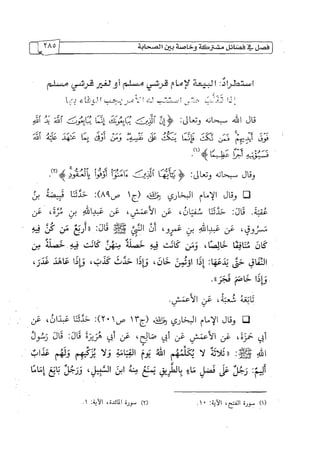 فصل في فضائل مشتركة وخاصة بين الصحابة
٢٨٥
استطراد: البيعة لإمام قرشي مسلم أو لغير قرشي مسلم
إذا تغلب حتى استتب له الأمر يجب الوفاء بها
قال الله سبحانه وتعالى: ﴿إِنَّ الَّذِينَ يُبَايِعُونَكَ إِنَّمَا يُبَايِعُونَ اللَّهَ يَدُ اللَّهِ
فَوْقَ أَيْدِيهِمْ فَمَن نَّكَثَ فَإِنَّمَا يَنكُثُ عَلَى نَفْسِهِ وَمَنْ أَوْفَى بِمَا عَاهَدَ عَلَيْهُ اللَّهَ
فَسَيُؤْتِيهِ أَجْرًا عَظِيمًا﴾(١).
وقال سبحانه وتعالى: ﴿يَاأَيُّهَا الَّذِينَ آمَنُوا أَوْفُوا بِالْعُقُودِ﴾(٢).
□ وقال الإمام البخاري رحمه الله (ج١ ص٨٩): حَدَّثَنَا قَبِيصَةُ بنُ
عُقْبَةَ. قَالَ: حَدَّثَنَا سُفْيَانُ، عَنِ الأَعْمَشِ، عَن عَبدِاللهِ بنِ مُرَّةَ، عَن
مَسرُوقٍ، عَن عَبدِاللهِ بنِ عَمرٍو، أَنَّ النَّبِيَّ ﷺ قَالَ: «أَربَعٌ مَن كُنَّ فِيهِ
كَانَ مُنَافِقًا خَالِصًا، وَمَن كَانَت فِيهِ خَصلَةٌ مِنهُنَّ كَانَت فِيهِ خَصلَةٌ مِن
النِّفَاقِ حَتَّى يَدَعَهَا: إِذَا اؤتُمِنَ خَانَ، وَإِذَا حَدَّثَ كَذَبَ، وَإِذَا عَاهَدَ غَدَرَ،
وَإِذَا خَاصَمَ فَجَرَ».
تَابَعَهُ شُعبَةُ، عَنِ الأَعمَشِ.
□ وقال الإمام البخاري رحمه الله (ج١٣ ص٢٠١): حَدَّثَنَا عَبدَانُ، عَن
أَبِي حَمزَةَ، عَنِ الأَعمَشِ عَن أَبِي صَالِحٍ، عَن أَبِي هُرَيرَةَ قَالَ: قَالَ رَسُولُ
اللهِ ﷺ: «ثَلَاثَةٌ لَا يُكَلِّمُهُم اللهُ يَومَ القِيَامَةِ وَلَا يُزَكِّيهِم وَلَهُم عَذَابٌ
أَلِيمٌ: رَجُلٌ عَلَى فَضلِ مَاءٍ بِالطَّرِيقِ يَمنَعُ مِنهُ ابنَ السَّبِيلِ، وَرَجُلٌ بَايَعَ إِمَامًا
(١) سورة الفتح، الآية: ١٠.
(٢) سورة المائدة، الآية: ١.